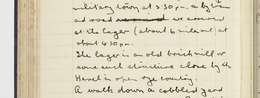 military lorry at 5.30 p.m. a
bad road we arrived
at the lager (about 6 miles) at
about 6.30 p.m.
The lager is an old brick or
some such close by the
in open country.
A walk down a cobbled yard